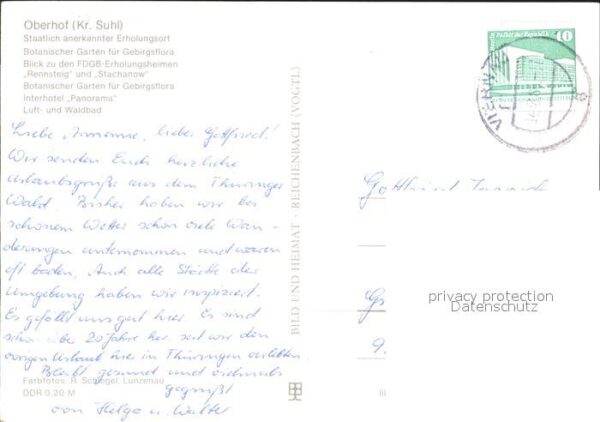 Oberhof (Kr. Suhl)
Staatlich anerkannter Erholungsort
Botanischer Garten für Gebirgsflora
Blick zu den FDGB-Erholungsheimen
„Rennsteig" und „Stachanow"
Botanischer Garten für Gebirgsflora
Interhotel „Panorama"
Luft- und Waldbad
Liebe Annemie, lieber Gottfried!
Wir senden Euch herzliche
Urlaubsgrüße aus dem Thüringer
Wald. Bisher haben wir bei
schönem Wetter schon viele Wan-
derungen unternommen und waren
oft baden. Auch alle Städte der
Umgebung haben wir inspiziert.
Es gefällt uns gut hier. Es sind
schon über 20 Jahre her, seit wir den
vorigen Urlaub hier in Thüringen verlebten.
Bleibt gesund und vielmals
gegrüßt
von Helga u. Walter
Farbfotos: R. Schlegel, Lunzenau
DDR 0,20 M
BILD UND HEIMAT · REICHENBACH (VOGTL)
Palast der Republik
10
Gottfried
9.
privacy protection
Datenschutz